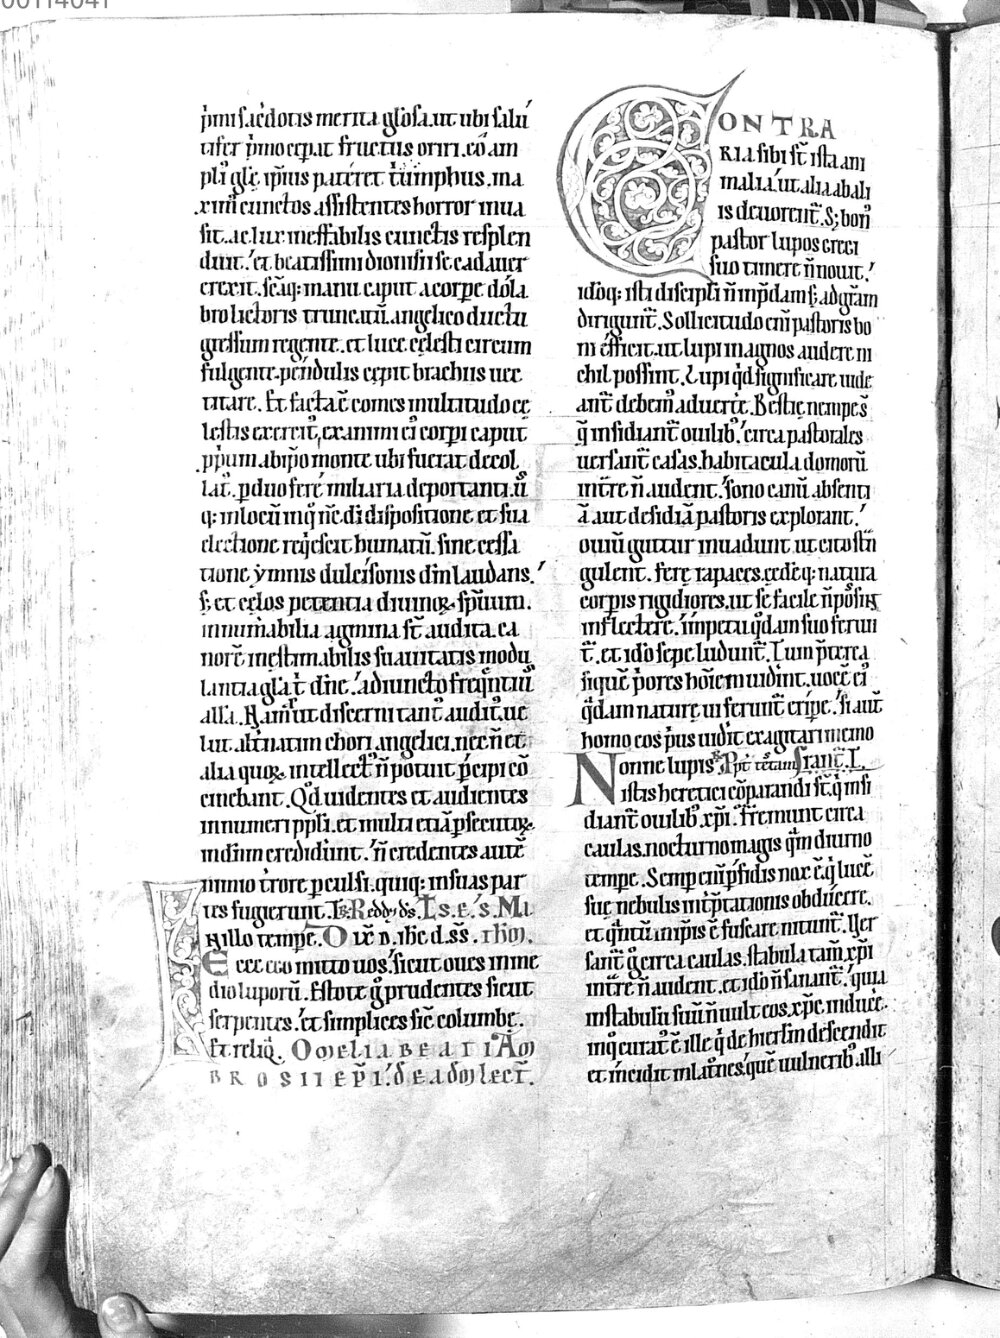 00114041
p̍imi sacdotis merita gl̄osa.ut ubi salu
tifer p̍mo cepat fructus oriri.eō am
pli glę ip̄ius pateret triumphus.ma
xim᷒ cunctos assistentes horror inua
sit.ac lux ineffabilis cunctis resplen
duit. et beatissimi dionisii se cadauer
erexit. sc̄aq: manu caput a corpe dola
bro lictoris truncatū.angelico ductu
gressum regente.et luce cęlesti circum
fulgente.pendulis cępit brachiis uec
titare. Et facta ē comes multitudo cę
lestis exercit᷒,exanimi ei᷒ corpi caput
p̄p̄um ab ip̄o monte ubi fuerat decol
lat᷒. p duo fere miliaria deportanti.us
q: in locū in q̊ nc̄.di dispositione et sua
electione reqescit humatū. sine cessa
tione ymnis dulcisonis dn̄m laudans.
s; et cęlos petentia diuinoꝝ sp̄uum.
innumabilia agmina st̄ audita.ca
nore inestimabilis suauitatis modu
lantia gl̄a t̄ dn̄e. adiuncto freqntius
all̄a. Nam ut discerni tant᷒ audit᷒.ue
lut alt̄natim chori angelici.nec n̄ et
alia quoꝝ intellect᷒ n̄ potuit pcipi cō
cinebant. Qd̄ uidentes et audientes
innumeri pp̄li.et multi etiā psecutoꝝ
in dn̄m crediderunt. n̄ credentes autē
nimio trore pculsi.quiq: in suas par
tes fugierunt. Is. Reddy. ds. I s. E. S. Mt.
N illo tempe. O ix̄ D. ih̄c d.ss. .
E cce ego mitto uos.sicut oues in me
dio luporū. Estote g̊ prudentes sicut
serpentes. et simplices sic̄ columbę.
Et reliq̄. OMELIA BEATI AM
BROSII EP̄I. DE EADM LECT̄.
C ONTRA
RIA sibi st̄ ista ani
malia.ut alia ab ali
is deuorent᷒. S; bon᷒
pastor lupos gregi
suo timere n̄ nouit.
idoq: isti discipli n̄ in p̄dam s; ad gr̄am
dirigunt᷒. Sollicitudo eni᷒ pastoris bo
ni efficit.ut lupi in agnos audere ni
chil possint. Lupi qd significare uide
ant᷒ debem᷒ aduertere. Bestię nempe s̄
q̄ insidiant᷒ ouilib᷒.circa pastorales
uersant᷒ casas.habitacula domorū
intre n̄ audent. sono canū absenti
ā aut desidiā pastoris explorant.
ouiū guttur inuadunt.ut cito stn̄
gulent. ferę rapaces.cędeq: natura
corpis rigidiores.ut se facile n̄ possint
inflectere. impetu qdam suo feruni
t᷒. et ido sępe ludunt᷒. Tum p̄terea
siquē p̍ores hoīem uidint.uocē ei᷒
qdam naturę ui ferunt᷒ eripe. si aut̄
homo eos p̍us uidit exagitari memo
rant᷒. I.
Nonne lupis
istis heretici cōparandi st̄.q̍ insi
diant᷒ ouilib᷒ xp̄i. Fremunt circa
caulas.nocturno magis qm̄ diurno
tempe. Semp eni᷒ pfidis nox ē.q̍ lucē
suę nebulis int̄ptationis obducere.
et qntū in ip̄is ē fuscare nitunt᷒. Uer
sant᷒ g̊ circa caulas.stabula tam̄ xp̄i
intre n̄ audent. et ido n̄ sanant᷒. quia
in stabulū suū n̄ uult eos xp̄c inducere.
in q̊ curat᷒ ē ille q̍ de hierl̄m descendit
et incidit in latrones.quē uulnerib᷒ alli